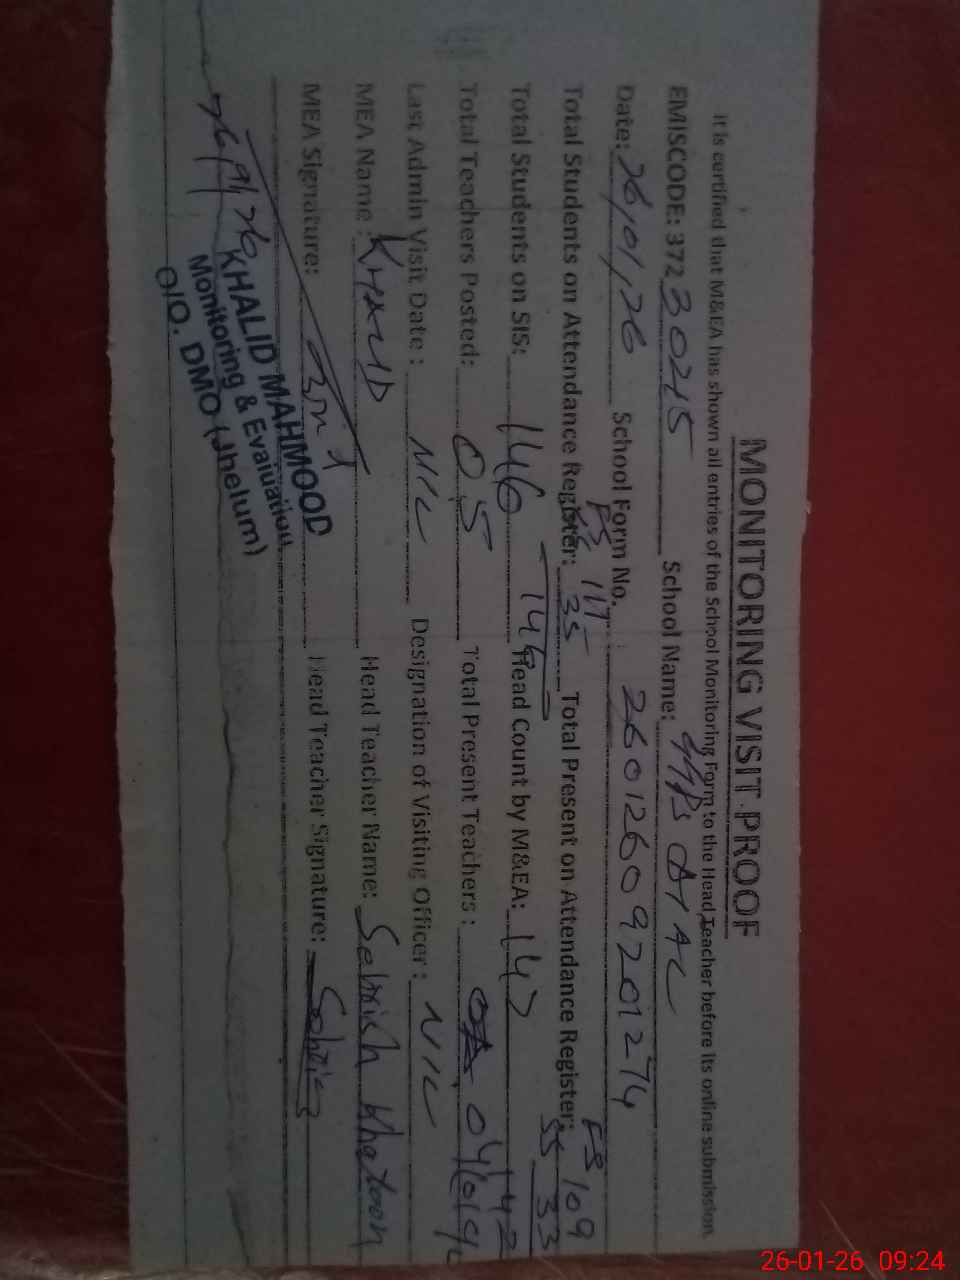 MONITORING VISIT PROOF
It is certified that M&EA has shown all entries of the School Monitoring Form to the Head Teacher before its online submission.
EMISCODE: 372 30215 School Name:
Date: 26/01/26 School Form No. 26012609201274
PS 117 PS 109
Total Students on Attendance Register: 35 Total Present on Attendance Register: SS 33
Total Students on SIS: 146 Head Count by M&EA: 147 142
Total Teachers Posted: 05 Total Present Teachers: 04
Last Admin Visit Date: NIL Designation of Visiting Officer: NIL
MEA Name: KHALID Head Teacher Name: Sehrish Khatoon
MEA Signature: Head Teacher Signature:
KHALID MAHMOOD
Monitoring & Evaluation
O/O. DMO (Jhelum)
26-01-26 09:24